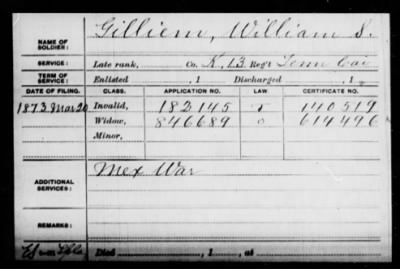 NAME OF SOLDIER: Gilliem, William S.
SERVICE: Late rank, Co. K, 13 Reg't Tenn Cav
TERM OF SERVICE: Enlisted , 1 Discharged , 1
DATE OF FILING. CLASS. APPLICATION NO. LAW. CERTIFICATE NO.
1873 Mar 20 Invalid, 182145 140519
Widow, 846689 614496
Minor,
ADDITIONAL SERVICES: Mex War
REMARKS:
Died , 1 , at